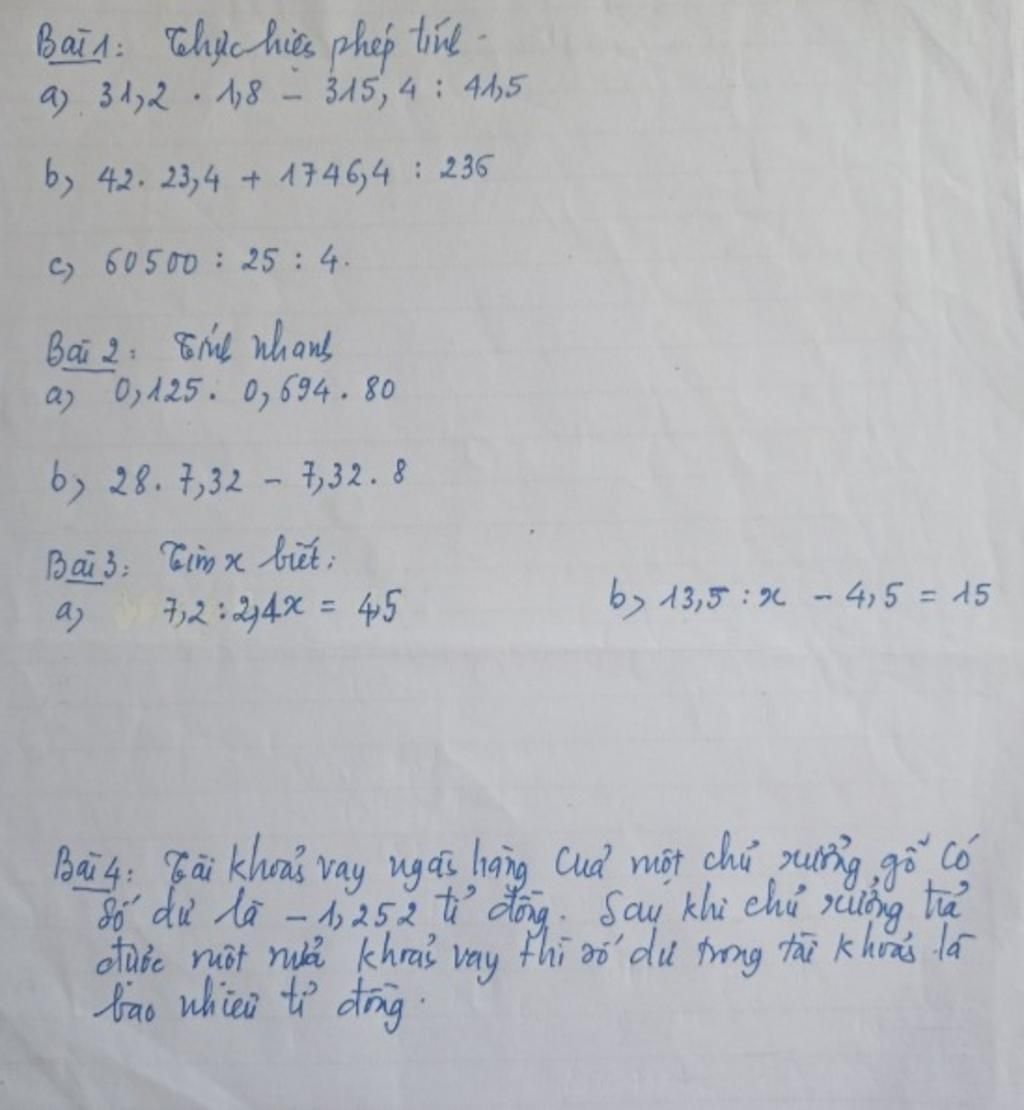 Bài 1: Thực hiện phép tính.
a) 31,2 . 1,8 - 315,4 : 41,5
b) 42. 23,4 + 1746,4 : 236
c) 60500 : 25 : 4.
Bài 2: Tính nhanh
a) 0,125. 0,694. 80
b) 28. 7,32 - 7,32. 8
Bài 3: Tìm x biết:
a) 7,2 : 2,4x = 4,5 b) 13,5 : x - 4,5 = 15
Bài 4: Tài khoản vay ngân hàng của một chủ xưởng gỗ có
số dư là - 1,252 tỉ đồng. Sau khi chủ xưởng trả
được một nửa khoản vay thì số dư trong tài khoản là
bao nhiêu tỉ đồng.